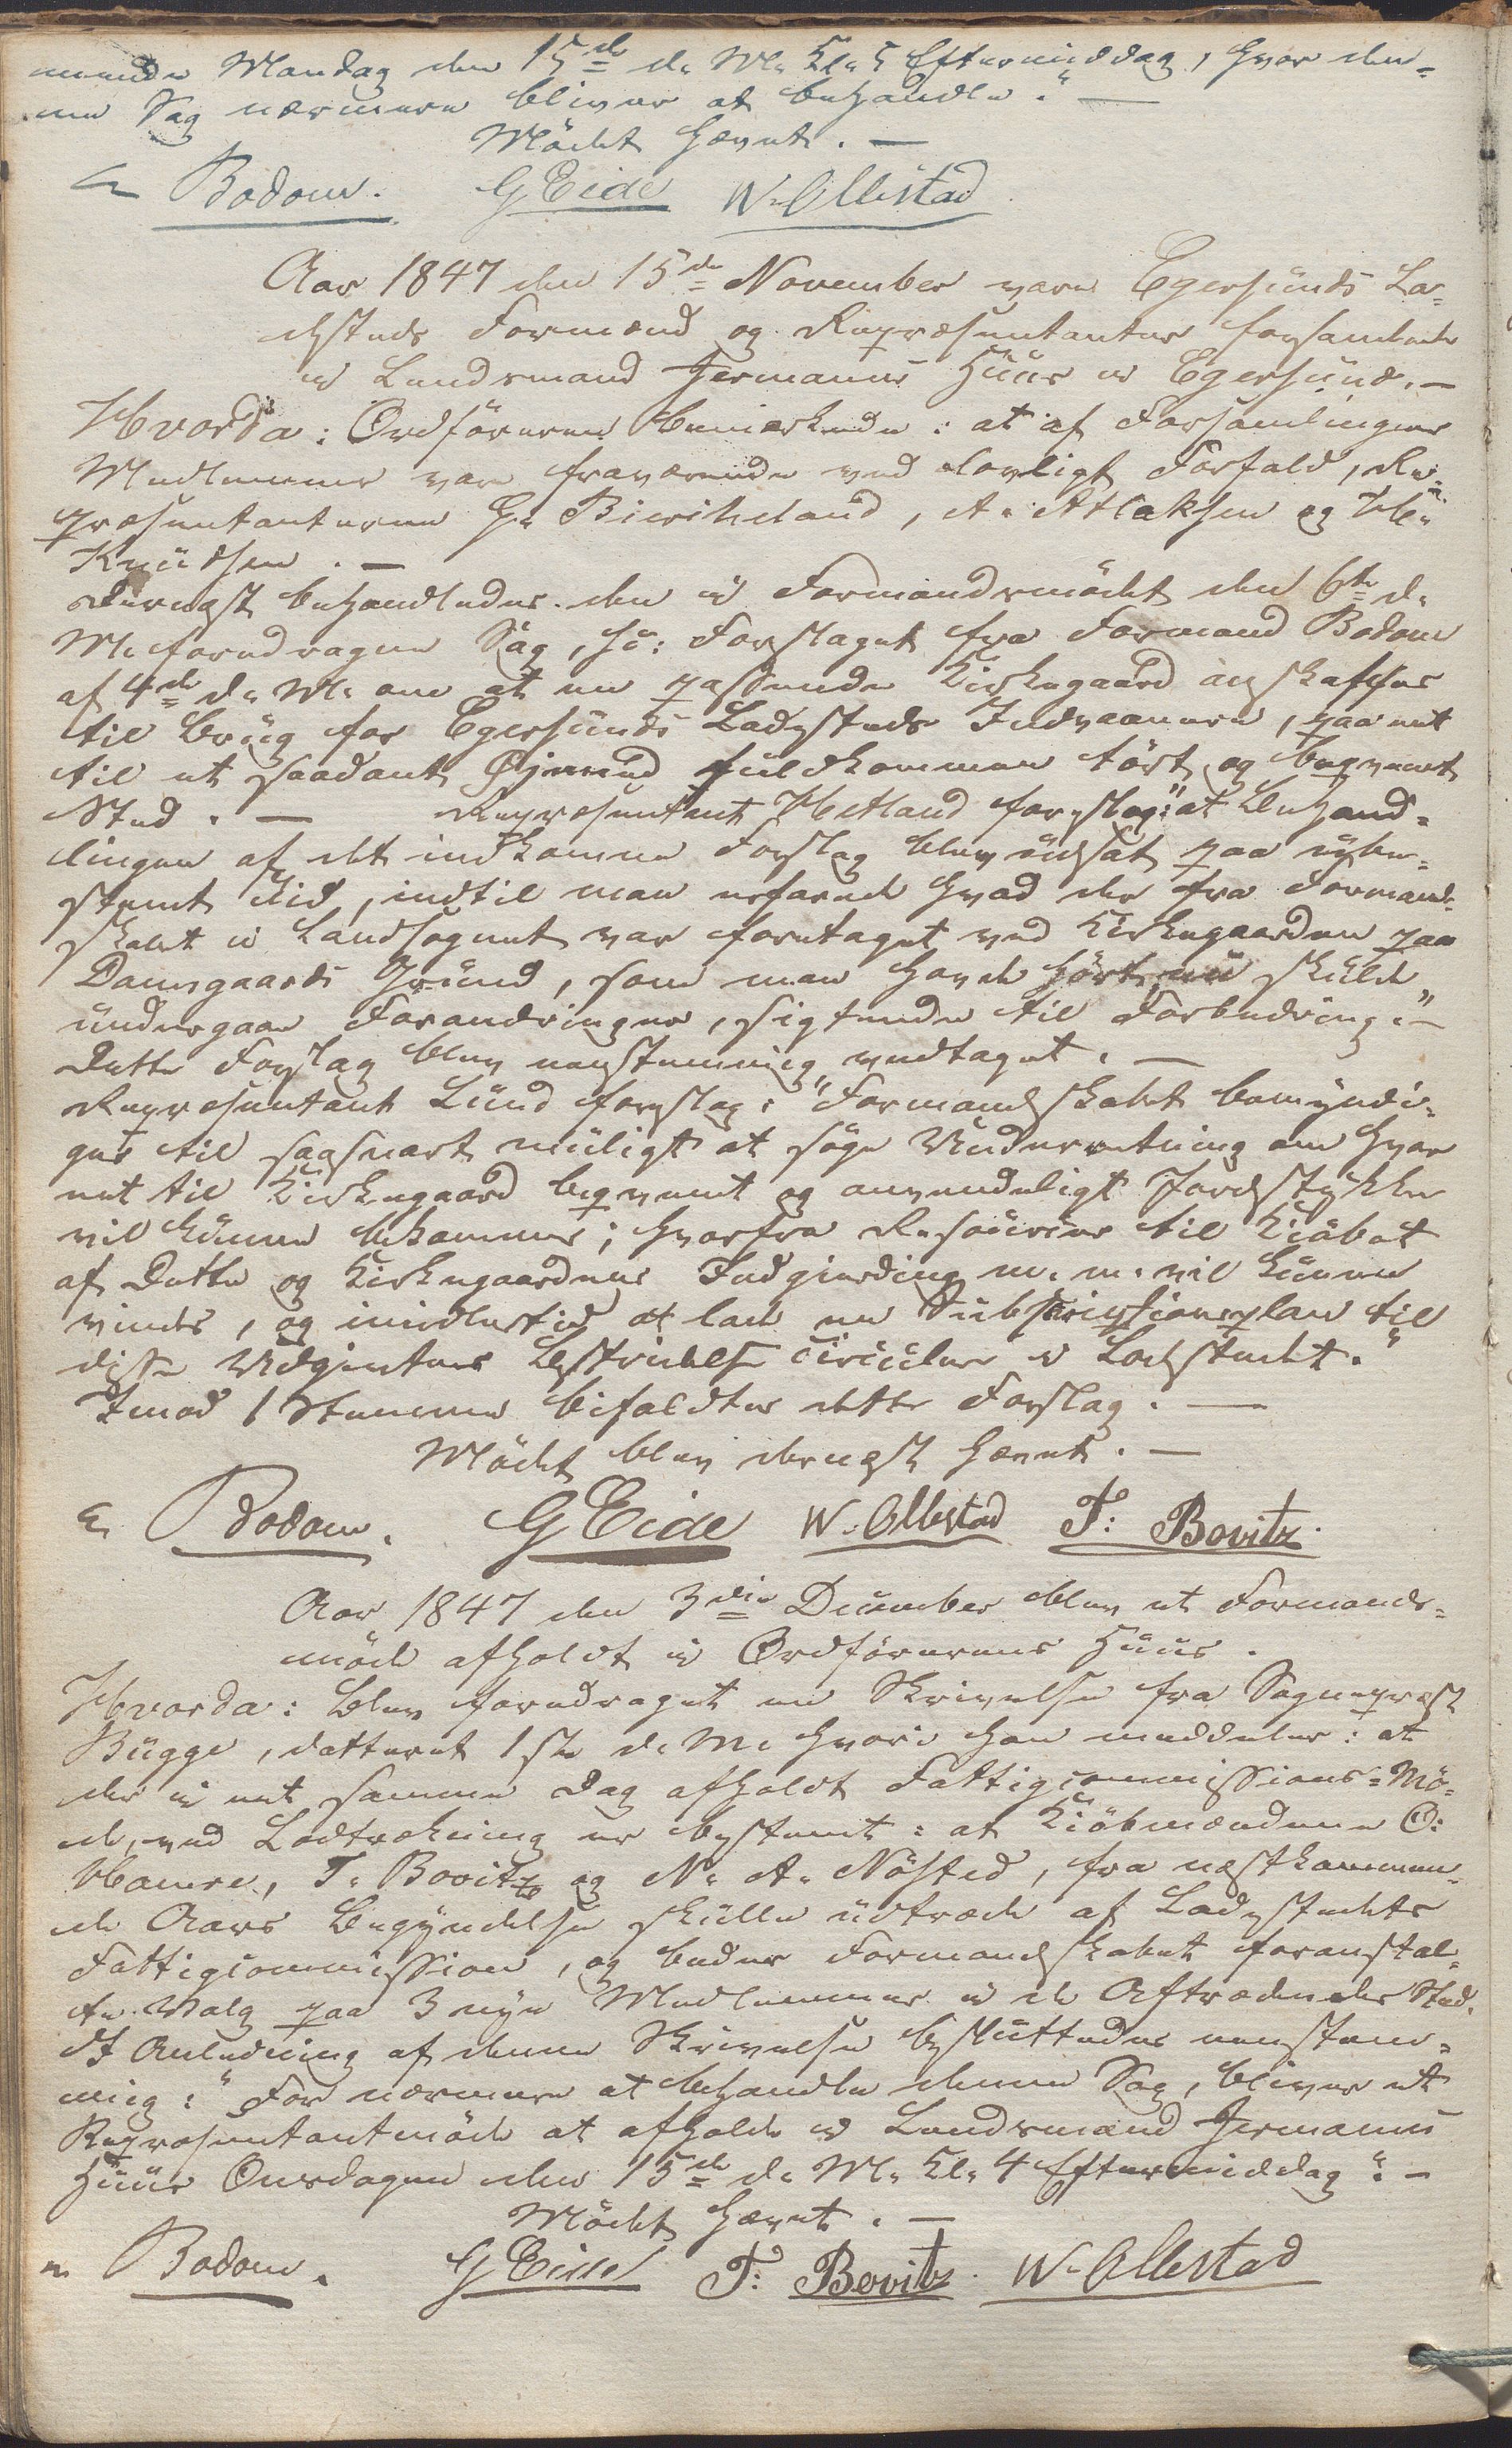 mende Mandag den 15de d. M. Kl. 5 Eftermiddag, hvor den-
ne Sag nærmere bliver at behandle." —
Mödet hævet. —
Bodom. G Eide W. Ollestad
Aar 1847 den 15de November vare Egersunds La-
desteds Formænd og Repræsentanter forsamlede
i Lendsmand Jermanns Huus i Egersund. —
Hvorda: Ordföreren bemærkede: at af Forsamlingens
Medlemmer vare fraværende ved lovligt Forfald, Re-
præsentanterne G. Birikeland, A. Atlaksen og M.
Knudsen. —
Dernæst behandledes den i Formandsmödet den 6te d.
M. foredragne Sag, ɔ: Forslaget fra Formand Bodom
af 4de d. M. om at en passende Kirkegaard anskaffes
til Brug for Egersunds Ladesteds Indvaanere, paa et
til et saadant Øjemed fuldkommen tört og beqvemt
Sted. — Repræsentant Hetland foreslog: "at Behand-
lingen af det indkomne Forslag blev udsat paa ube-
stemt Tid, indtil man erfarede hvad der fra Formand-
skabet i Landsognet var foretaget ved Kirkegaarden paa
Damsgaards Grund, som man havde hört, nu skulde
undergaae Forandringer, sigtende til Forbedring." —
Dette Forslag blev eenstemmig vedtaget. —
Repræsentant Lund foreslog: "Formandskabet bemyndi-
ges til saasnart muligt at söge Underretning om hvor
et til Kirkegaard beqvemt og anvendeligt Jordstykke
vil kunne bekommes; hvorfra Resourcer til Kiöbet
af Dette og Kirkegaardens Indgierding m. m. vil kunne
vindes, og imidlertid at lade en Subscriptionsplan til
disse Udgivters Bestridelse circulere i Ladestedet."
Imod 1 Stemme bifaldtes dette Forslag. —
Mödet blev dernæst hævet. —
Bodom. G Eide W. Ollestad T: Bovitz.
Aar 1847 den 3die December blev et Formands-
möde afholdt i Ordförerens Huus.
Hvorda: Blev foredraget en Skrivelse fra Sognepræst
Bugge, datteret 1ste d. M. hvori han meddeler: at
der i et samme Dag afholdt Fattigcommissions-Mö-
de, ved Lodtrækning er bestemt: at Kiöbmændene O:
Hamre, T. Bovitz og N. A. Nösted, fra næstkommen-
de Aars Begyndelse skulle udtræde af Ladestedets
Fattigcommission, og beder Formandskabet foranstal-
te Valg paa 3 nye Medlemmer i de Aftrædendes Sted.
I Anledning af denne Skrivelse besluttedes eenstem-
mig: "For nærmere at behandle denne Sag, bliver et
Repræsentantmöde at afholde i Lendsmand Jermanns
Huus Onsdagen den 15de d. M. Kl. 4 Eftermiddag". —
Mödet hævet. —
Bodom. G Eide T: Bovitz. W. Ollestad